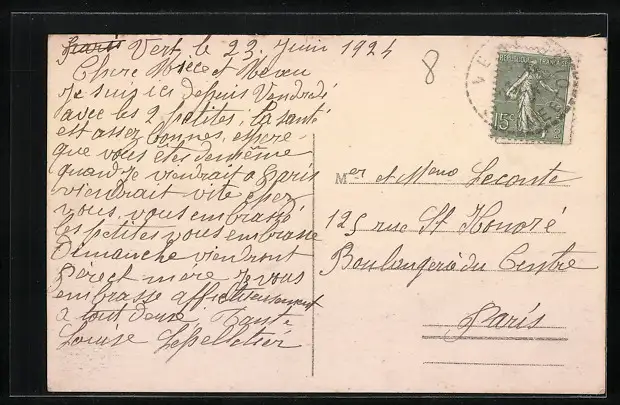 Paris Vert, le 23. Juin 1924
8
Chere Niece et Neveu
Je suis ici depuis Vendredi
avec les 2 petites, la santé
est assez bonnes, espere
que vous êtes de même
quand je viendrait a Paris
viendrait vite chez
vous, vous embrasse
les petites vous embrasse
Dimanche viendront
Pere et mere Je vous
embrasse affectueusement
a tout deux Tante
Louise Lepelletier
REPUBLIQUE FRANÇAISE
15c
Mer et Mme Leconte
125 rue St Honoré
Boulangerie du Centre
Paris